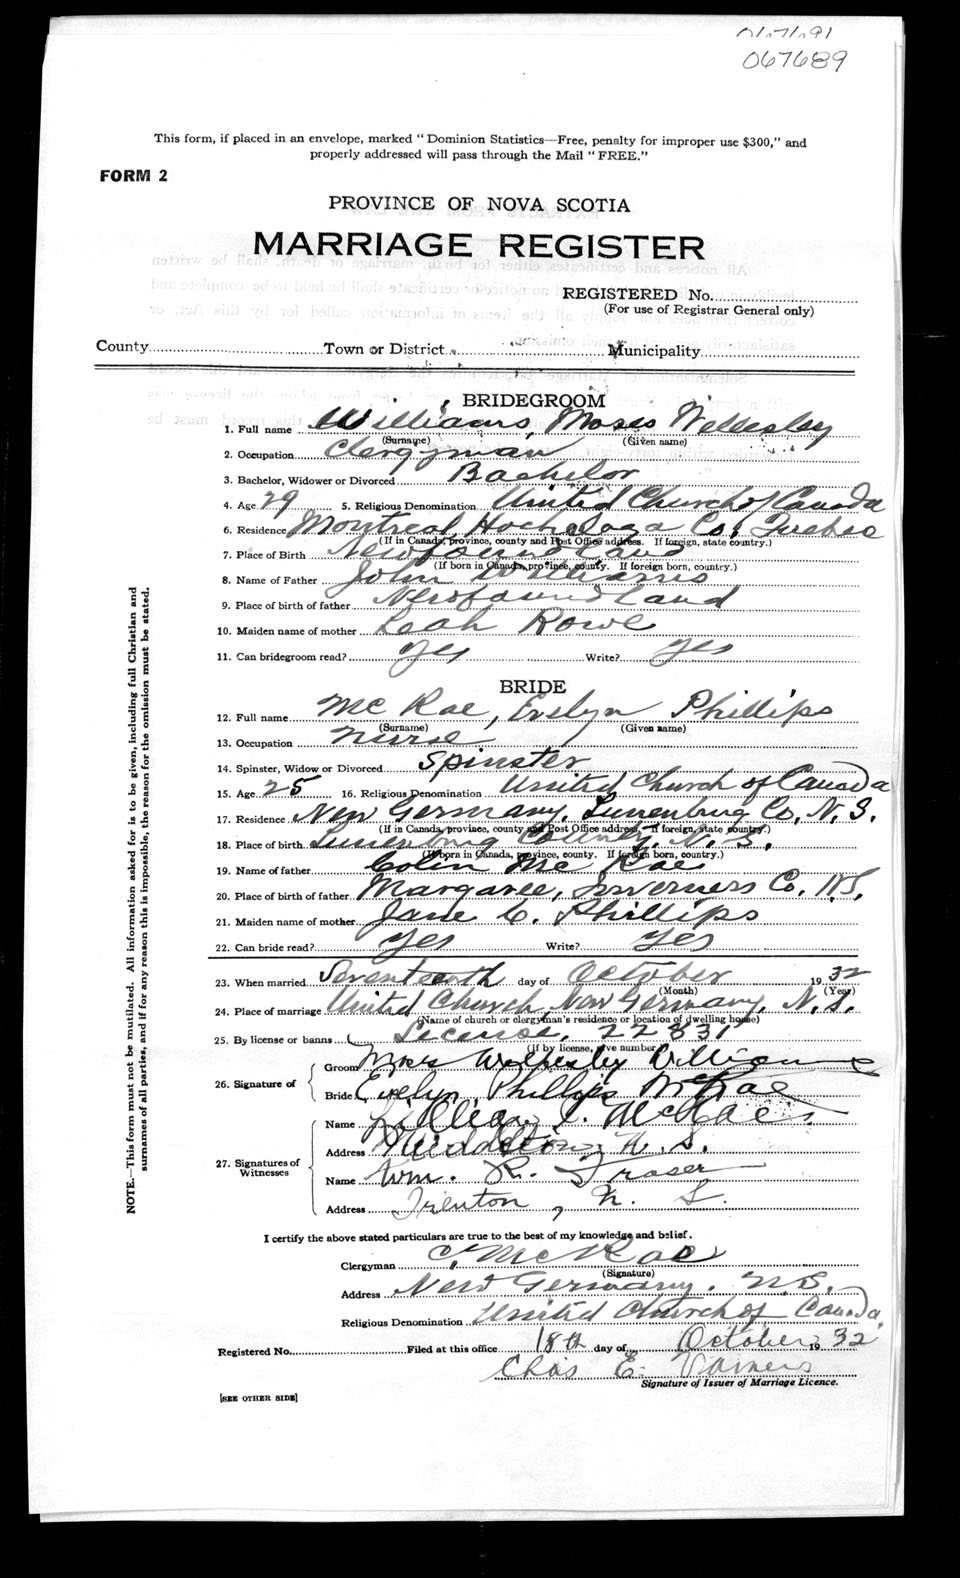 067689
This form, if placed in an envelope, marked "Dominion Statistics—Free, penalty for improper use $300," and
properly addressed will pass through the Mail "FREE."
FORM 2
PROVINCE OF NOVA SCOTIA
MARRIAGE REGISTER
REGISTERED No.
(For use of Registrar General only)
County Town or District Municipality
BRIDEGROOM
1. Full name Williams, Moses Wellesley
(Surname) (Given name)
2. Occupation Clergyman
3. Bachelor, Widower or Divorced Bachelor
4. Age 29 5. Religious Denomination United Church of Canada
6. Residence Montreal Hochelaga Co, Quebec
(If in Canada, province, county and Post Office address. If foreign, state country.)
7. Place of Birth Newfoundland
(If born in Canada, province, county. If foreign born, country.)
8. Name of Father John Williams
9. Place of birth of father Newfoundland
10. Maiden name of mother Leah Rowe
11. Can bridegroom read? Yes Write? Yes
BRIDE
12. Full name McRae, Evelyn Phillips
(Surname) (Given name)
13. Occupation Nurse
14. Spinster, Widow or Divorced Spinster
15. Age 25 16. Religious Denomination United Church of Canada
17. Residence New Germany, Lunenburg Co, N. S.
(If in Canada, province, county and Post Office address. If foreign, state country.)
18. Place of birth Lunenburg County, N. S.
(If born in Canada, province, county. If foreign born, country.)
19. Name of father Colin McRae
20. Place of birth of father Margaree, Inverness Co. N.S.
21. Maiden name of mother Jane C. Phillips
22. Can bride read? Yes Write? Yes
23. When married Seventeenth day of October 1932
(Month) (Year)
24. Place of marriage United Church, New Germany, N. S.
(Name of church or clergyman's residence or location of dwelling house)
25. By license or banns License, 22831
(If by license, give number)
26. Signature of
Groom Moses Wellesley Williams
Bride Evelyn Phillips McRae
27. Signatures of Witnesses
Name McRae
Address Middleton, N. S.
Name Wm. R. Fraser
Address Trenton, N. S.
I certify the above stated particulars are true to the best of my knowledge and belief.
Clergyman C. McRae
(Signature)
Address New Germany. N.S.
Religious Denomination United Church of Canada.
Registered No. Filed at this office 18th day of October 1932
Chas E.
Signature of Issuer of Marriage Licence.
[SEE OTHER SIDE]
NOTE.—This form must not be mutilated. All information asked for is to be given, including full Christian and
surnames of all parties, and if for any reason this is impossible, the reason for the omission must be stated.